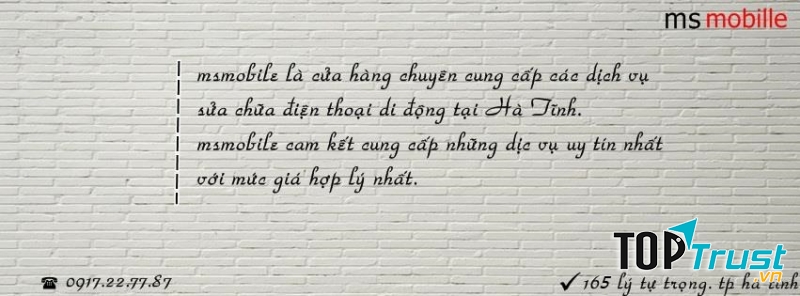 ms mobille
msmobile là cửa hàng chuyên cung cấp các dịch vụ
sửa chữa điện thoại di động tại Hà Tĩnh.
msmobile cam kết cung cấp những dịc vụ uy tín nhất
với mức giá hợp lý nhất.
TOPTrust.vn
☎ 0917.22.77.87
✓ 165 lý tự trọng. tp hà tĩnh